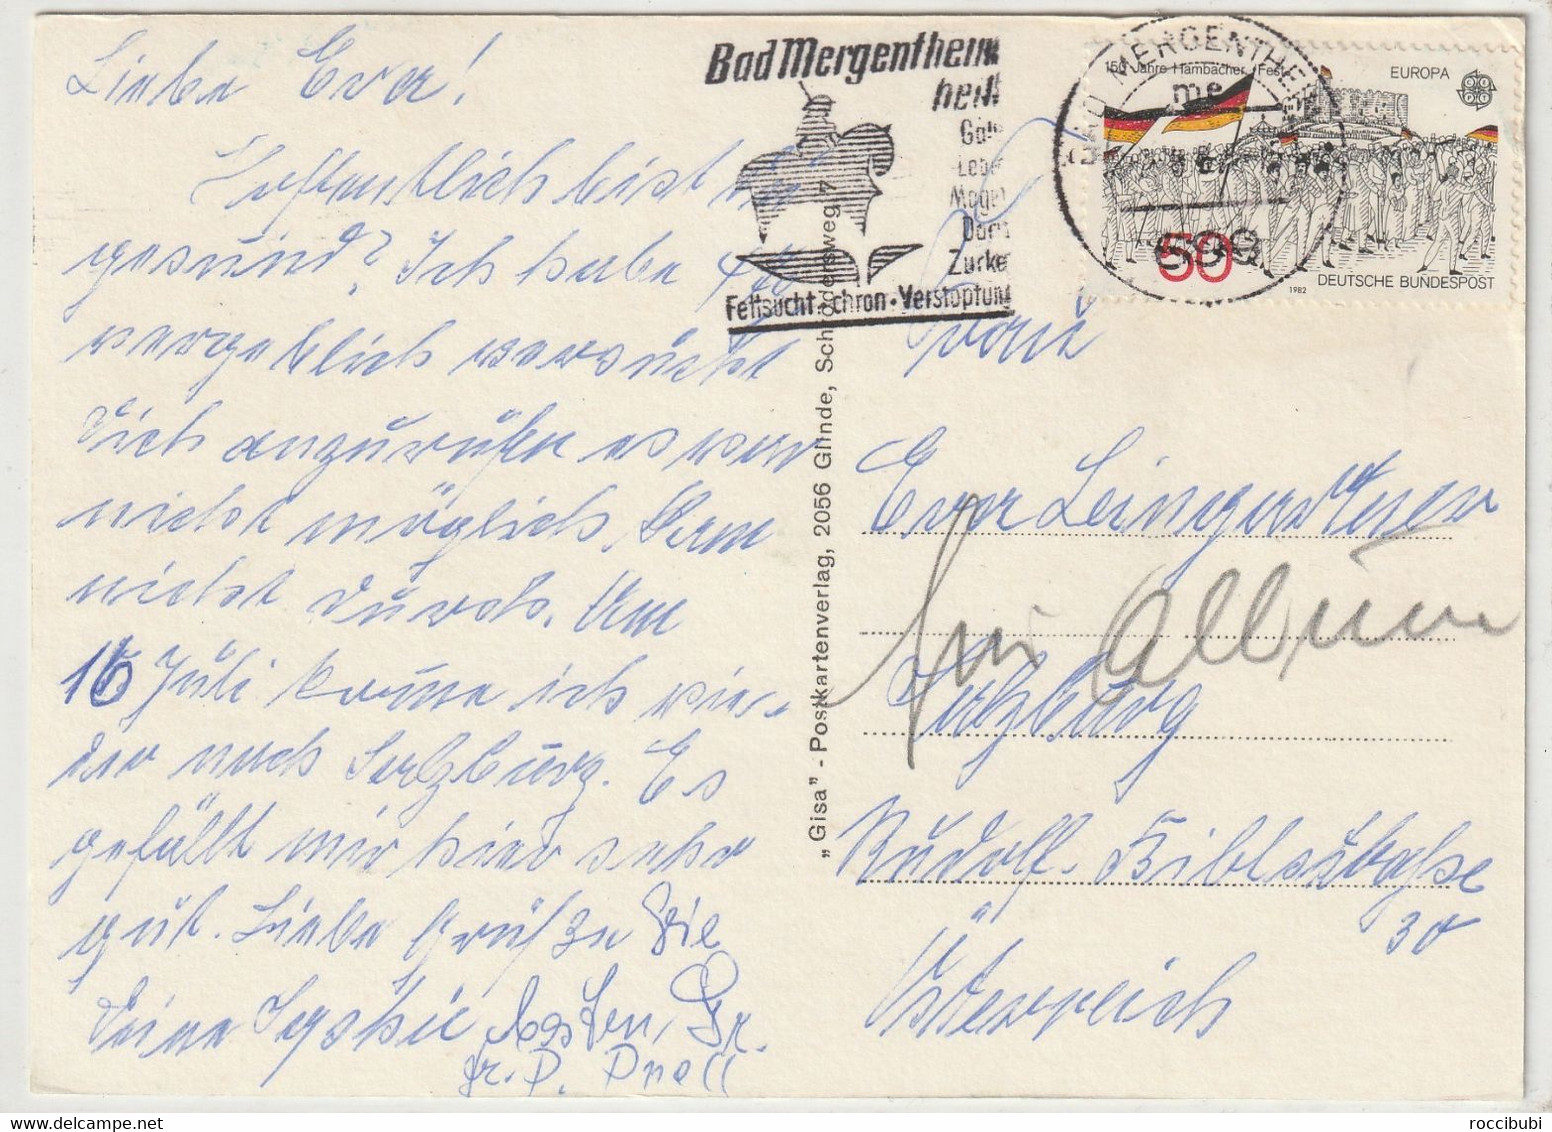 Liebe Eva!
Hoffentlich bist du
gesund? Ich habe
vergeblich versucht
Dich anzurufen es war
nicht möglich. Kam
nicht durch. Am
16 Juli komme ich wie-
der nach Salzburg. Es
gefällt mir hier sehr
gut. Liebe Grüße Sie
Deine
Bad Mergentheim
heilt
Galle
Leber
Magen
Darm
Zucker
Fettsucht chron. Verstopfung
BAD MERGENTHEIM
me
699
150 Jahre Hambacher Fest
EUROPA
50
1982 DEUTSCHE BUNDESPOST
„Gisa” - Postkartenverlag, 2056 Glinde, Schrödersweg 7
Eva
Album
Salzburg
Rudolf-Biblstraße
30
Österreich
roccibubi